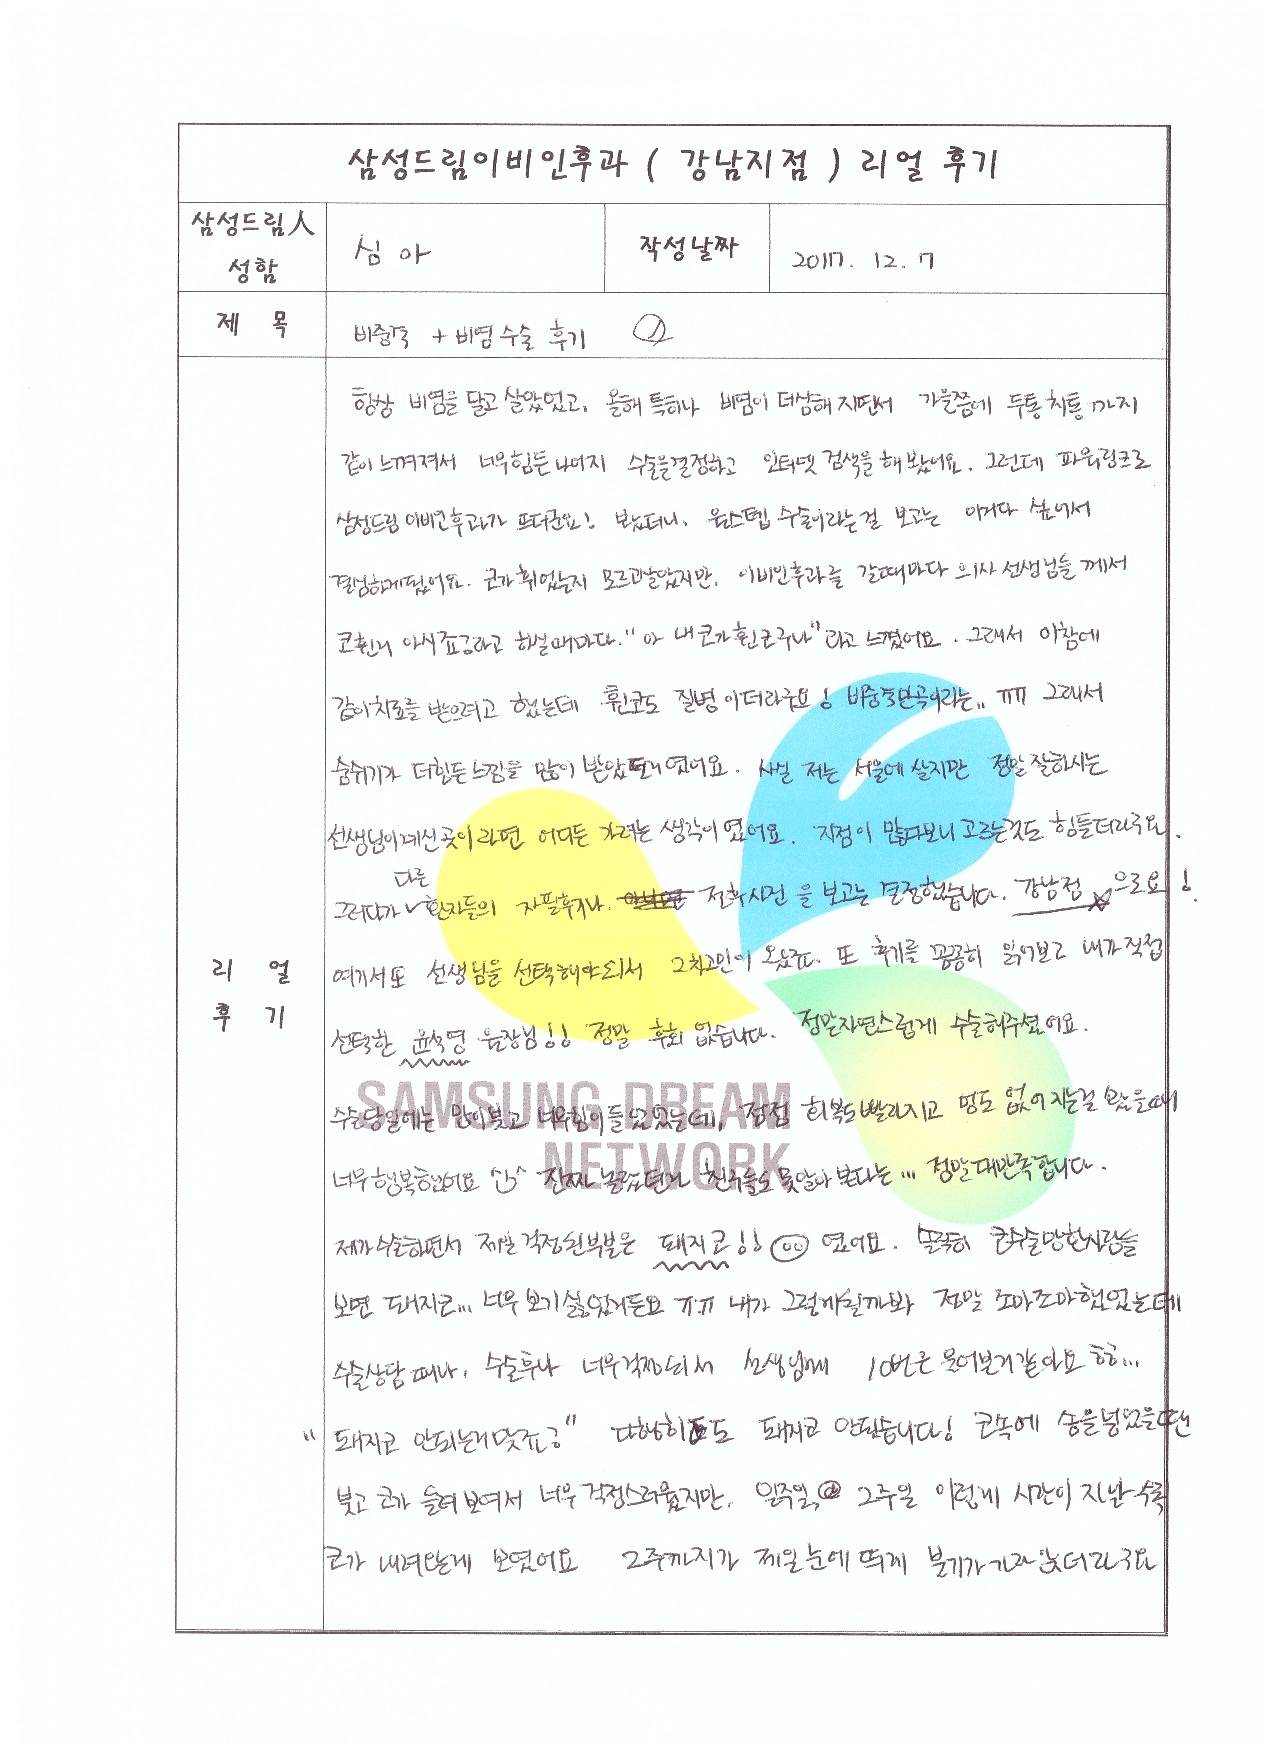 삼성드림이비인후과 ( 강남지점 ) 리얼 후기
삼성드림人 성함
심 아
작성날짜
2017. 12. 7
제 목
비중격 + 비염수술 후기 ①
리 얼 후 기
항상 비염을 달고 살았었고, 올해 특히나 비염이 더심해지면서 가을쯤에 두통치통까지
같이 느껴져서 너무힘든나머지 수술을결정하고 인터넷 검색을 해봤어요. 그런데 파워링크로
삼성드림이비인후과가 뜨더군요! 봤더니, 원스텝 수술이라는걸 보고는 이거다 싶어서
결심하게됐어요. 코가 휘었는지 모르고살았지만, 이비인후과를 갈때마다 의사선생님들께서
코휜거 아시죠?라고 하실때마다. "아 내코가휜코구나"라고 느꼈어요. 그래서 이참에
같이치료를 받으려고 했는데 휜코도 질병이더라구요! 비중격만곡이라는.. ㅠㅠ 그래서
숨쉬기가 더힘든느낌을 많이 받았던거였어요. 사실 저는 서울에 살지만 정말 잘하시는
선생님이계신곳이라면 어디든 가려는 생각이였어요. 지점이 많다보니 고르는것도 힘들더라구요.
그러다가 다른 환자들의 자필후기나 전후사진을 보고는 결정했습니다. 강남점으로요!
여기서또 선생님을 선택해야되서 2차고민이 왔죠. 또 후기를 꼼꼼히 읽어보고 내가직접
선택한 윤석영 원장님!! 정말 후회 없습니다. 정말자연스럽게 수술해주셨어요.
수술당일에는 많이붓고 너무힘이들었었는데, 점점 회복도빨라지고 멍도 없어지는걸 봤을때
너무행복했어요 ^^ 진짜 놀랐던건 친구들도 못알아 보다는... 정말대만족합니다.
제가수술하면서 제일 걱정된부분은 돼지코!! 였어요. 코수술망한사람들
보면 돼지코... 너무 보기싫었거든요 ㅠㅠ 내가 그렇게될까봐 정말 조마조마했었는데
수술상담때나, 수술후나 너무걱정되서 선생님께 10번은 물어본거같아요 하하...
"돼지코 안되는거맞죠?" 다행히도 돼지코 안됐습니다! 코속에 솜을넣었을땐
붓고 코가 들려보여서 너무 걱정스러웠지만, 일주일, 2주일 이렇게 시간이 지날수록
코가 내려앉는게 보였어요 2주까지가 제일눈에 띄게 붓기가 가라앉더라구요
SAMSUNG DREAM
NETWORK